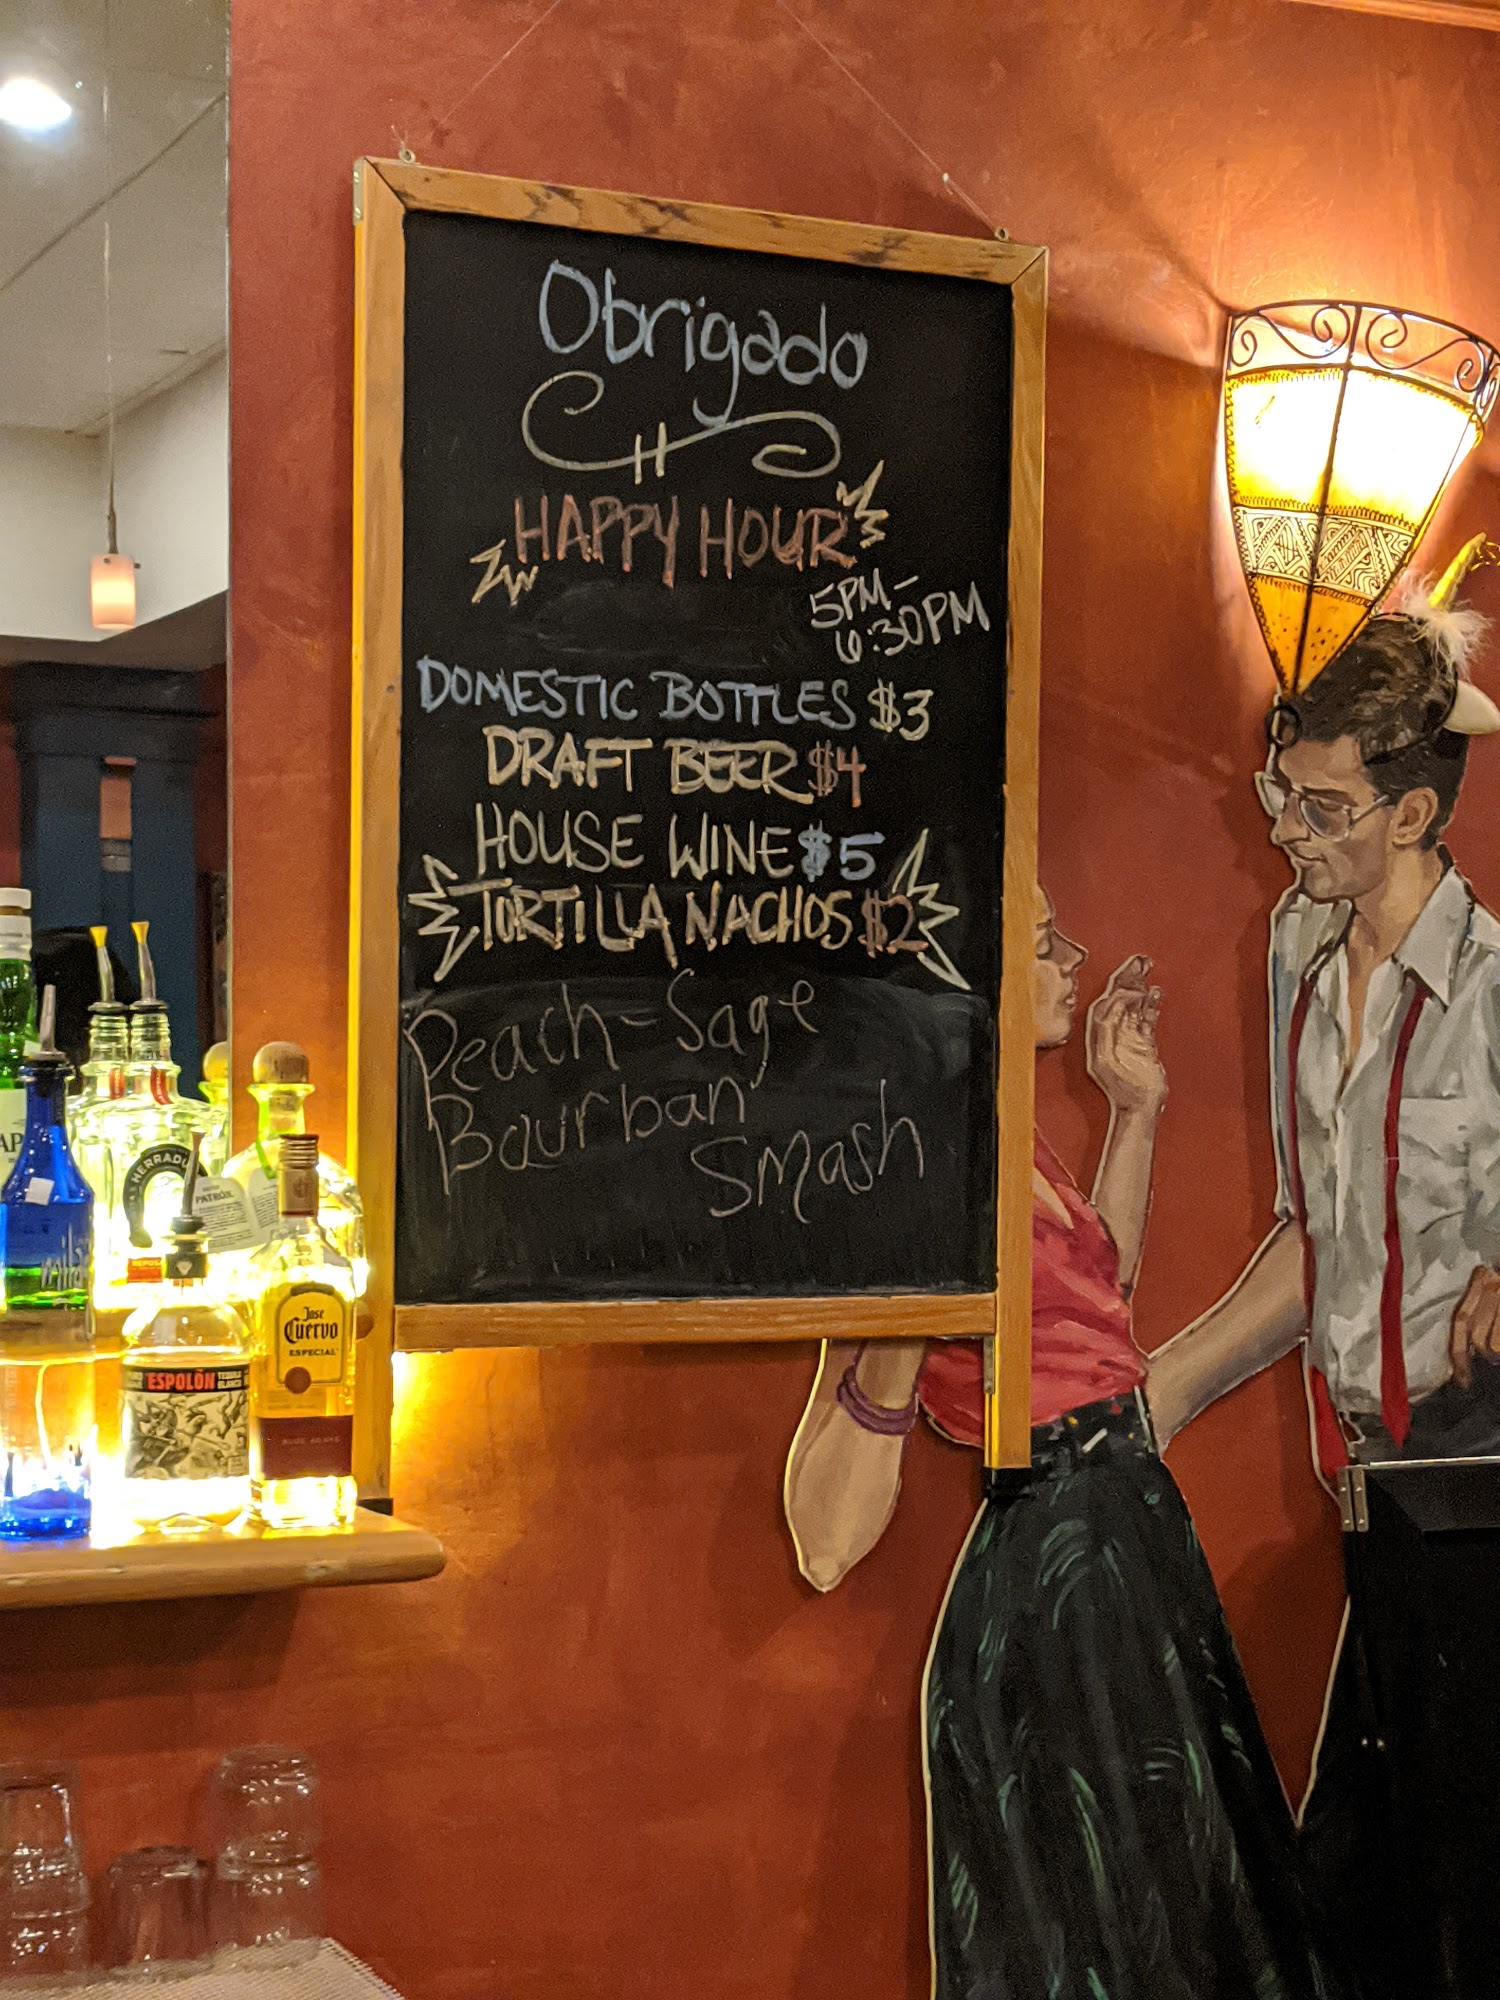 Obrigado
HAPPY HOUR
5PM-
6:30PM
DOMESTIC BOTTLES $3
DRAFT BEER $4
HOUSE WINE $5
TORTILLA NACHOS $2
Peach-Sage
Bourban
Smash
HERRADU
PATRÓN
Jose
Cuervo
ESPECIAL
BLUE AGAVE
ESPOLÒN
TEQUILA
BLANCO